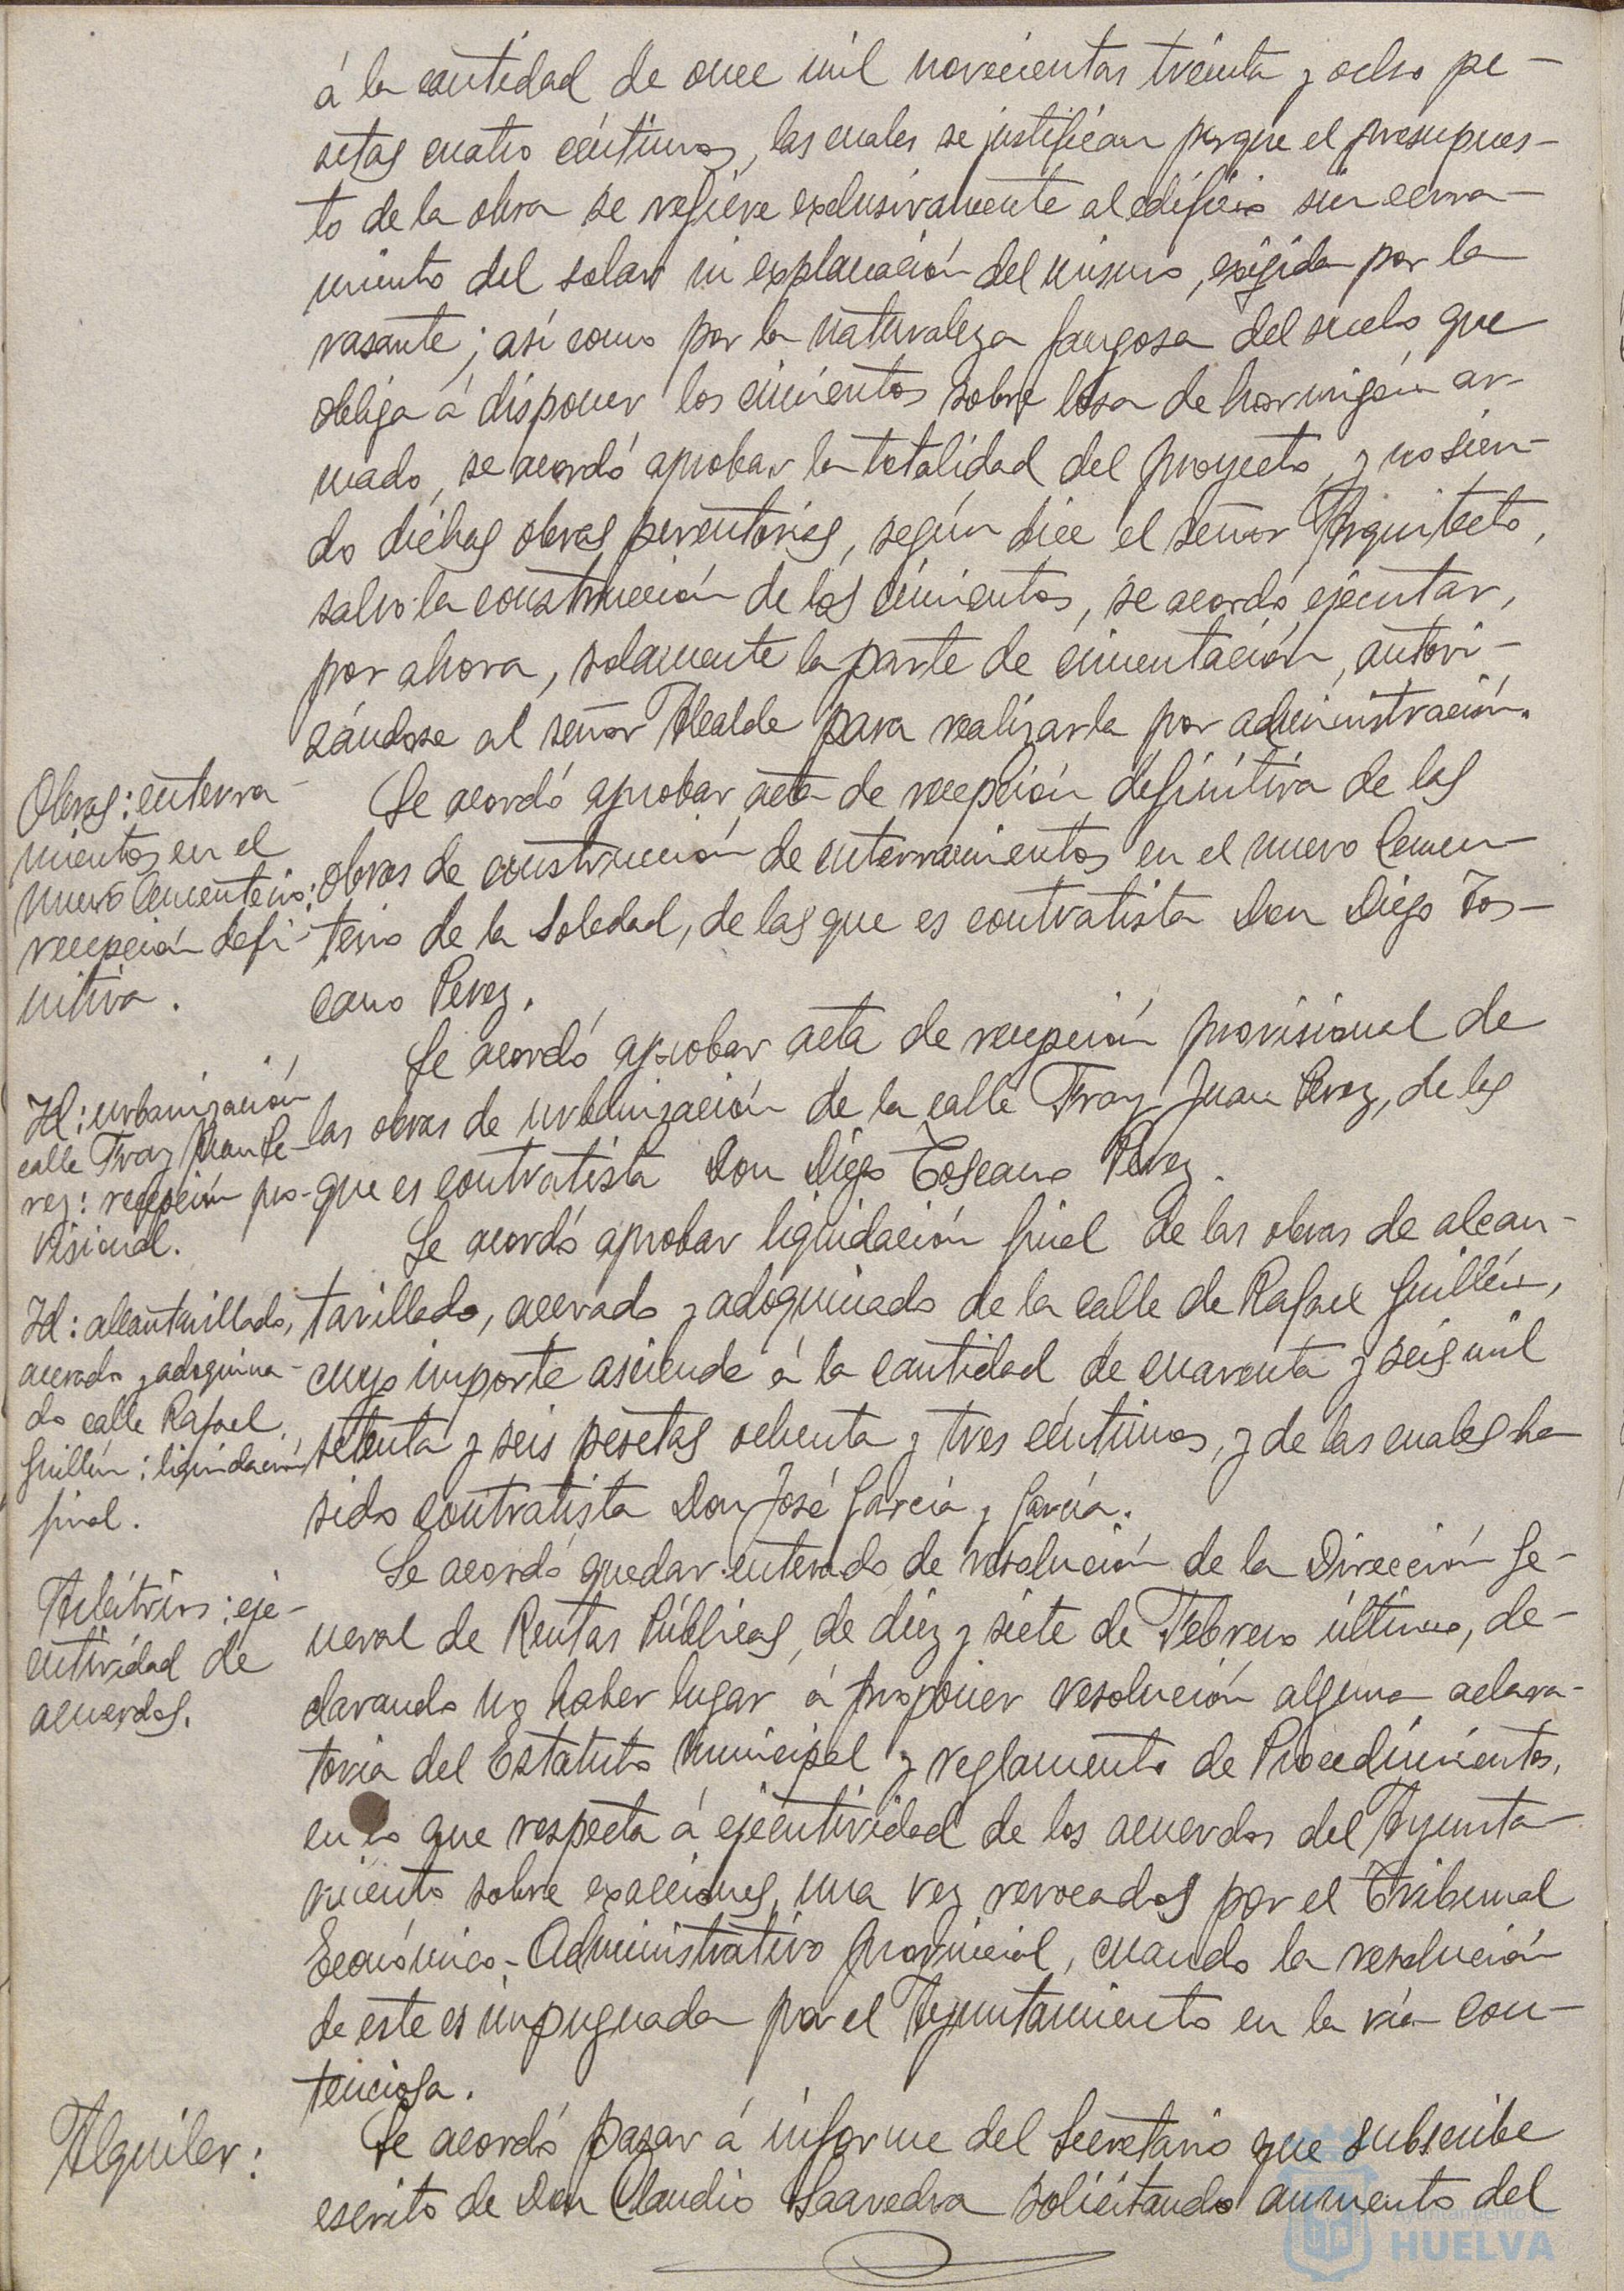 á la cantidad de once mil novecientas treinta y ocho pe-
setas cuatro céntimos, las cuales se justifican porque el presupues-
to de la obra se refiere exclusivamente al edificio sin cerra-
miento del solar ni explanación del mismo, exigida por la
rasante; así como por la naturaleza fangosa del suelo que
obliga á disponer los cimientos sobre losa de hormigón ar-
mado, se acordó aprobar la totalidad del proyecto, y no sien-
do dichas obras perentorias, según dice el señor Arquitecto,
salvo la construcción de los cimientos, se acordó ejecutar,
por ahora, solamente la parte de cimentación, autori-
zándose al señor Alcalde para realizarla por administración.
Obras: enterra-
mientos en el
nuevo Cementerio:
recepción defi-
nitiva.
Se acordó aprobar acta de recepción definitiva de las
obras de construcción de enterramientos en el nuevo Cemen-
terio de la Soledad, de las que es contratista Don Diego Tos-
cano Perez.
Id: urbanización
calle Fray Juan Pe-
rez: recepción pro-
visional.
Se acordó aprobar acta de recepción provisional de
las obras de urbanización de la calle Fray Juan Perez, de las
que es contratista Don Diego Toscano Perez.
Id: alcantarillado,
acerado y adoquina-
do calle Rafael
Guillén: liquidación
final.
Se acordó aprobar liquidación final de las obras de alcan-
tarillado, acerado y adoquinado de la calle de Rafael Guillén,
cuyo importe asciende á la cantidad de cuarenta y seis mil
setenta y seis pesetas ochenta y tres céntimos, y de las cuales ha
sido contratista Don José García y García.
Arbitrios: eje-
cutividad de
acuerdos.
Se acordó quedar enterado de resolución de la Dirección Ge-
neral de Rentas Públicas, de diez y siete de Febrero último, de-
clarando no haber lugar á proponer resolución alguna aclara-
toria del Estatuto Municipal y reglamento de Procedimientos,
en lo que respecta á ejecutividad de los acuerdos del Ayunta-
miento sobre exacciones, una vez revocados por el Tribunal
Económico-Administrativo provincial, cuando la resolución
de este es impugnada por el Ayuntamiento en la vía con-
tenciosa.
Alquiler:
Se acordó pasar á informe del Secretario que subscribe
escrito de Don Claudio Saavedra solicitando aumento del
Ayuntamiento de
HUELVA